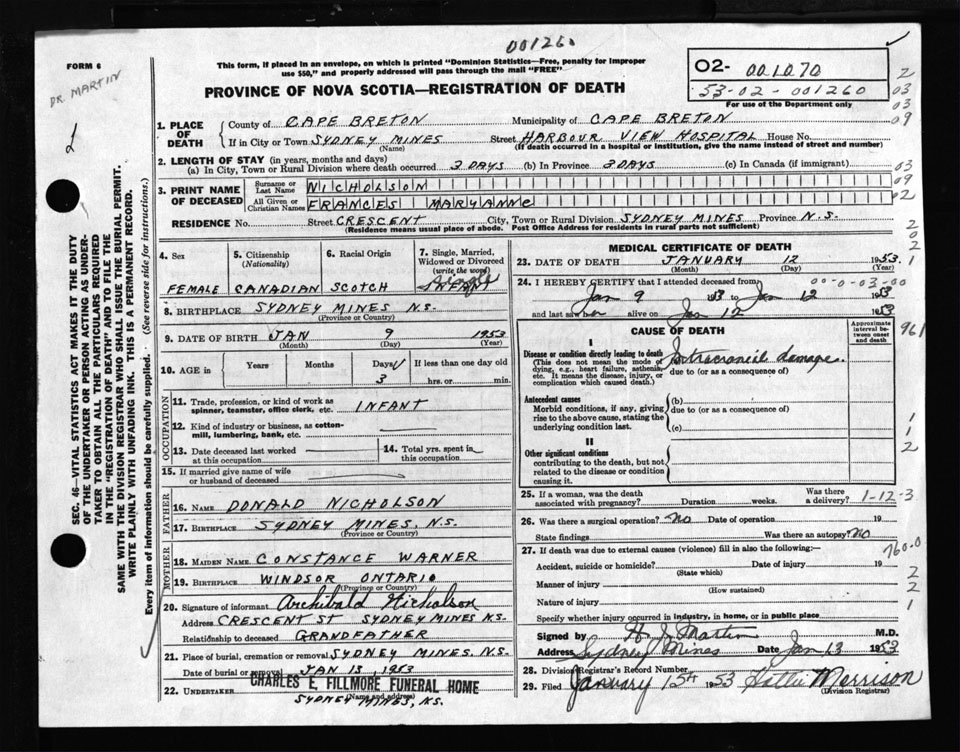 001260
FORM 6
DR. MARTIN
This form, if placed in an envelope, on which is printed "Dominion Statistics—Free, penalty for improper
use $50," and properly addressed will pass through the mail "FREE".
PROVINCE OF NOVA SCOTIA—REGISTRATION OF DEATH
02- 001070
53-02-001260
For use of the Department only
2
03
03
09
1. PLACE OF DEATH
County of CAPE BRETON Municipality of CAPE BRETON
If in City or Town SYDNEY MINES Street HARBOUR VIEW HOSPITAL House No.
(Name) (If death occurred in a hospital or institution, give the name instead of street and number)
2. LENGTH OF STAY (in years, months and days)
(a) In City, Town or Rural Division where death occurred 3 DAYS (b) In Province 3 DAYS (c) In Canada (if immigrant)
03
09
02
3. PRINT NAME OF DECEASED
Surname or Last Name NICHOLSON
All Given or Christian Names FRANCES MARYANNE
RESIDENCE No. Street CRESCENT City, Town or Rural Division SYDNEY MINES Province N.S.
(Residence means usual place of abode. Post Office Address for residents in rural parts not sufficient)
202
1
4. Sex
FEMALE
5. Citizenship (Nationality)
CANADIAN
6. Racial Origin
SCOTCH
7. Single, Married, Widowed or Divorced (write the word)
Single
INFANT
8. BIRTHPLACE SYDNEY MINES N.S.
(Province or Country)
9. DATE OF BIRTH JAN 9 1953
(Month) (Day) (Year)
10. AGE in Years Months Days 3 If less than one day old
hrs. or min.
OCCUPATION
11. Trade, profession, or kind of work as
spinner, teamster, office clerk, etc. INFANT
12. Kind of industry or business, as cotton-
mill, lumbering, bank, etc.
13. Date deceased last worked
at this occupation
14. Total yrs. spent in
this occupation
15. If married give name of wife
or husband of deceased
FATHER
16. Name DONALD NICHOLSON
17. Birthplace SYDNEY MINES, N.S.
(Province or Country)
MOTHER
18. Maiden Name CONSTANCE WARNER
19. Birthplace WINDSOR ONTARIO
(Province or Country)
20. Signature of informant Archibald Nicholson
Address CRESCENT ST SYDNEY MINES N.S.
Relationship to deceased GRANDFATHER
21. Place of burial, cremation or removal SYDNEY MINES, N.S.
Date of burial or removal JAN 13, 1953
CHARLES E. FILLMORE FUNERAL HOME
22. UNDERTAKER
(Name and address)
SYDNEY MINES, N.S.
MEDICAL CERTIFICATE OF DEATH
23. DATE OF DEATH JANUARY 12 1953
(Month) (Day) (Year)
24. I HEREBY CERTIFY that I attended deceased from 0-0-03-00
Jan 9 1953 to Jan 12 1953
and last saw her alive on Jan 12 1953
CAUSE OF DEATH
Approximate interval between onset and death
961
I
Disease or condition directly leading to death
(This does not mean the mode of
dying, e.g., heart failure, asthenia,
etc. It means the disease, injury, or
complication which caused death.)
Intracranial damage
due to (or as a consequence of)
Antecedent causes
Morbid conditions, if any, giving
rise to the above cause, stating the
underlying condition last.
(b)
due to (or as a consequence of)
(c)
1
1
2
II
Other significant conditions
contributing to the death, but not
related to the disease or condition
causing it.
25. If a woman, was the death
associated with pregnancy? Duration weeks. Was there
a delivery? 1-12-3
26. Was there a surgical operation? No Date of operation 19
State findings Was there an autopsy? No
27. If death was due to external causes (violence) fill in also the following:—
760.0
Accident, suicide or homicide? Date of injury 19
(State which)
Manner of injury
(How sustained)
Nature of injury
Specify whether injury occurred in industry, in home, or in public place
2
2
1
Signed by H. J. Martin M.D.
Address Sydney Mines Date Jan 13 1953
28. Division Registrar's Record Number
29. Filed January 15th 1953 Hattie Morrison
(Division Registrar)
SEC. 46—VITAL STATISTICS ACT MAKES IT THE DUTY
OF THE UNDERTAKER OR PERSON ACTING AS UNDER-
TAKER TO OBTAIN ALL THE PARTICULARS REQUIRED
IN THE "REGISTRATION OF DEATH" AND TO FILE THE
SAME WITH THE DIVISION REGISTRAR WHO SHALL ISSUE THE BURIAL PERMIT.
WRITE PLAINLY WITH UNFADING INK. THIS IS A PERMANENT RECORD.
Every item of information should be carefully supplied. (See reverse side for instructions.)